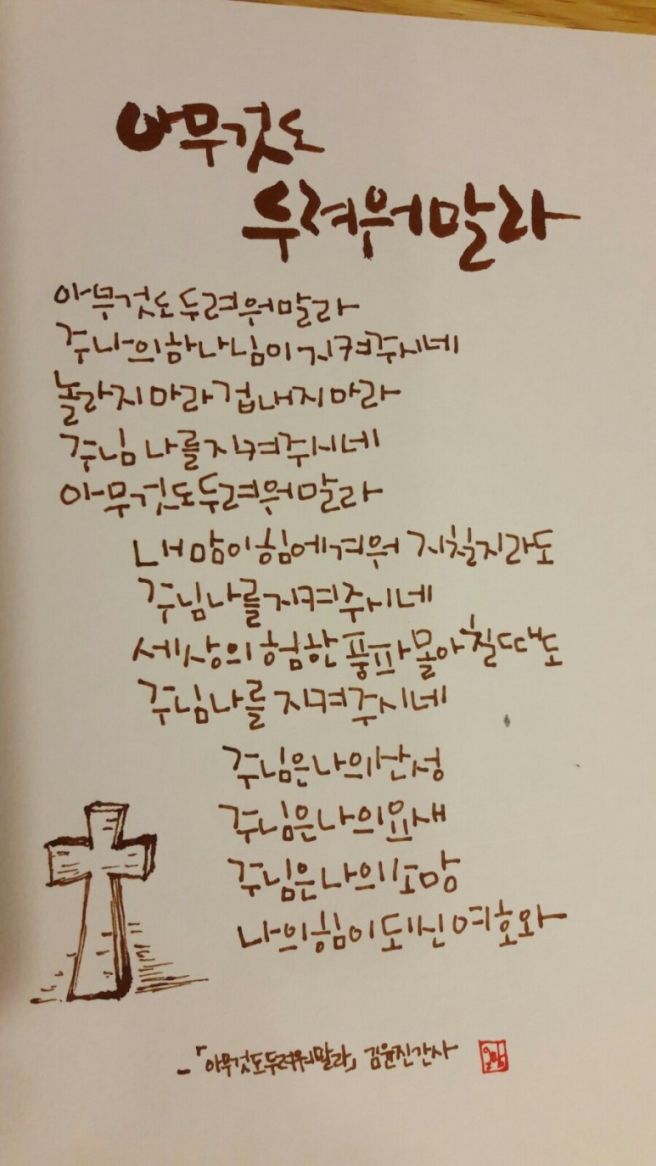 아무것도
두려워말라
아무것도두려워말라
주나의하나님이지켜주시네
놀라지마라겁내지마라
주님나를지켜주시네
아무것도두려워말라
내맘이힘에겨워 지칠지라도
주님나를지켜주시네
세상의험한풍파몰아칠때도
주님나를지켜주시네
주님은나의산성
주님은나의요새
주님은나의소망
나의힘이되신여호와
-「아무것도두려워말라」 김윤진간사